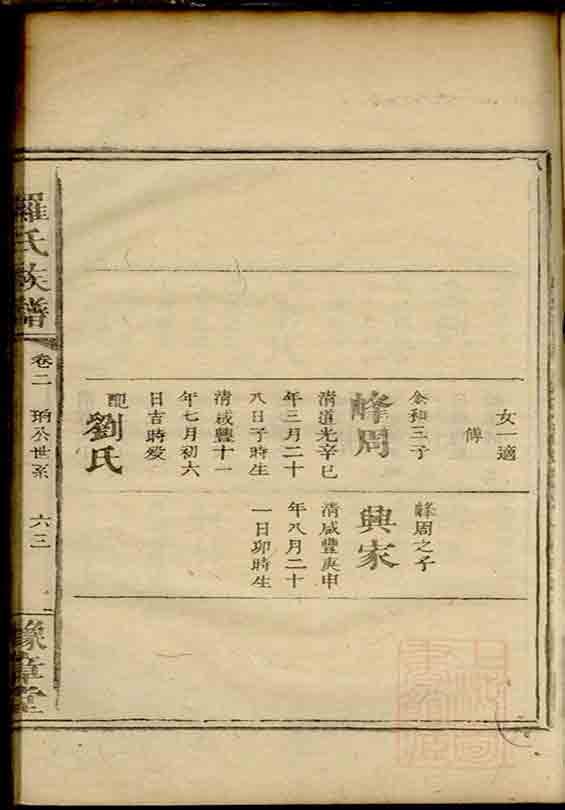 女一適
傅
余和三子
峰周
清道光辛巳
年三月二十
八日子時生
清咸豐十一
年七月初六
日吉時歿
配
劉氏
峰周之子
興家
清咸豐庚申
年八月二十
一日卯時生
羅氏族譜
卷二
珀公世系
六三
豫章堂